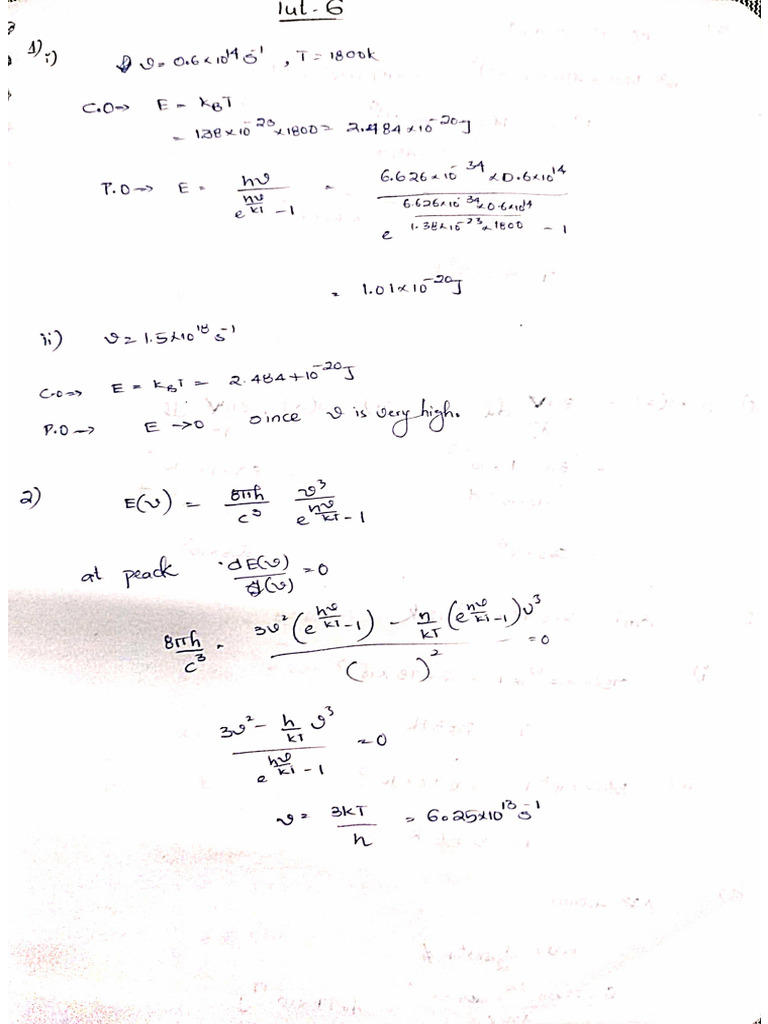 Tut-6
1) i) ϑ = 0.6×10^14 s^-1 , T = 1800k
C.O→ E = K_BT
= 1.38×10^-23 ×1800 = 2.484×10^-20 J
P.O→ E = hν / (e^(hν/kT) -1) = 6.626×10^-34 ×0.6×10^14 / (e^(6.626×10^-34×0.6×10^14 / 1.38×10^-23×1800) - 1)
= 1.01×10^-20 J
ii) ϑ = 1.5×10^18 s^-1
C.O⇒ E = K_BT = 2.484+10^-20 J
P.O→ E →0 since ϑ is very high.
2) E(ν) = 8πh/c^3 ν^3/(e^(hν/kT) -1)
at peack dE(ν)/d(ν) = 0
8πh/c^3 . (3ν^2 (e^(hν/kT) -1) - h/kT (e^(hν/kT) -1) ν^3) / ( )^2 = 0
(3ν^2 - h/kT ν^3) / (e^(hν/kT) -1) = 0
ν = 3KT/h = 6.25×10^13 s^-1